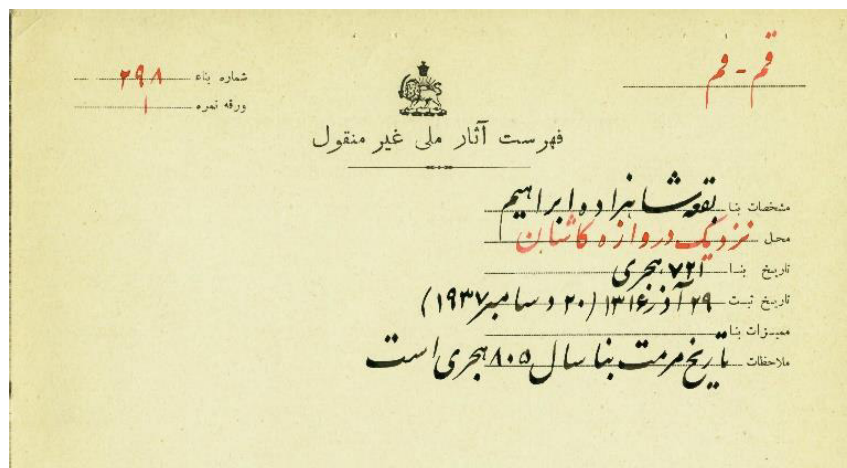 قم - قم
شماره بناء ۲۹۸
ورقه نمره ۱
فهرست آثار ملی غیر منقول
مشخصات بنا بقعه شاهزاده ابراهیم
محل نزدیک دروازه کاشان
تاریخ بنا ۷۲۱ هجری
تاریخ ثبت ۲۹ آذر ۱۳۱۶ (۲۰ دسامبر ۱۹۳۷)
ممیزات بنا
ملاحظات تاریخ مرمت بنا سال ۸۰۵ هجری است